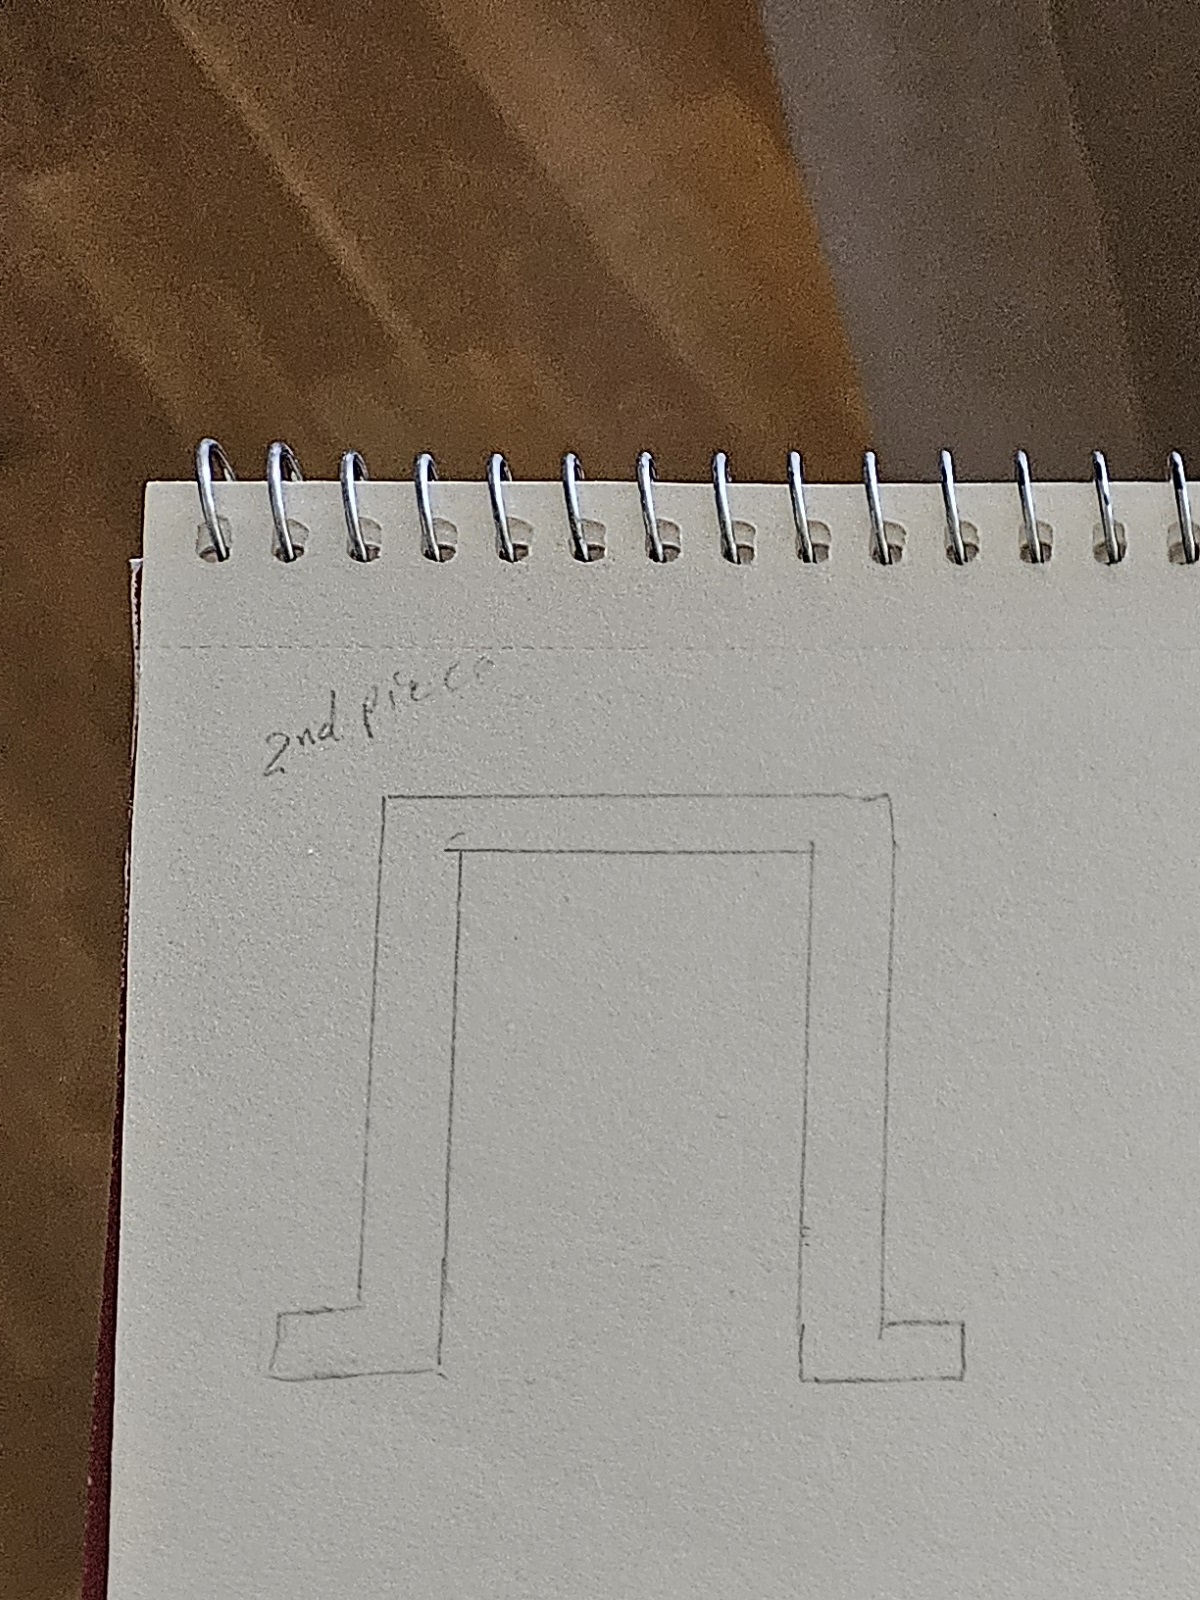 2nd piece